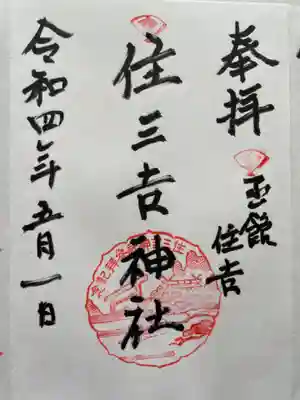 奉拝
函館
住吉
住三吉神社
令和四年五月一日